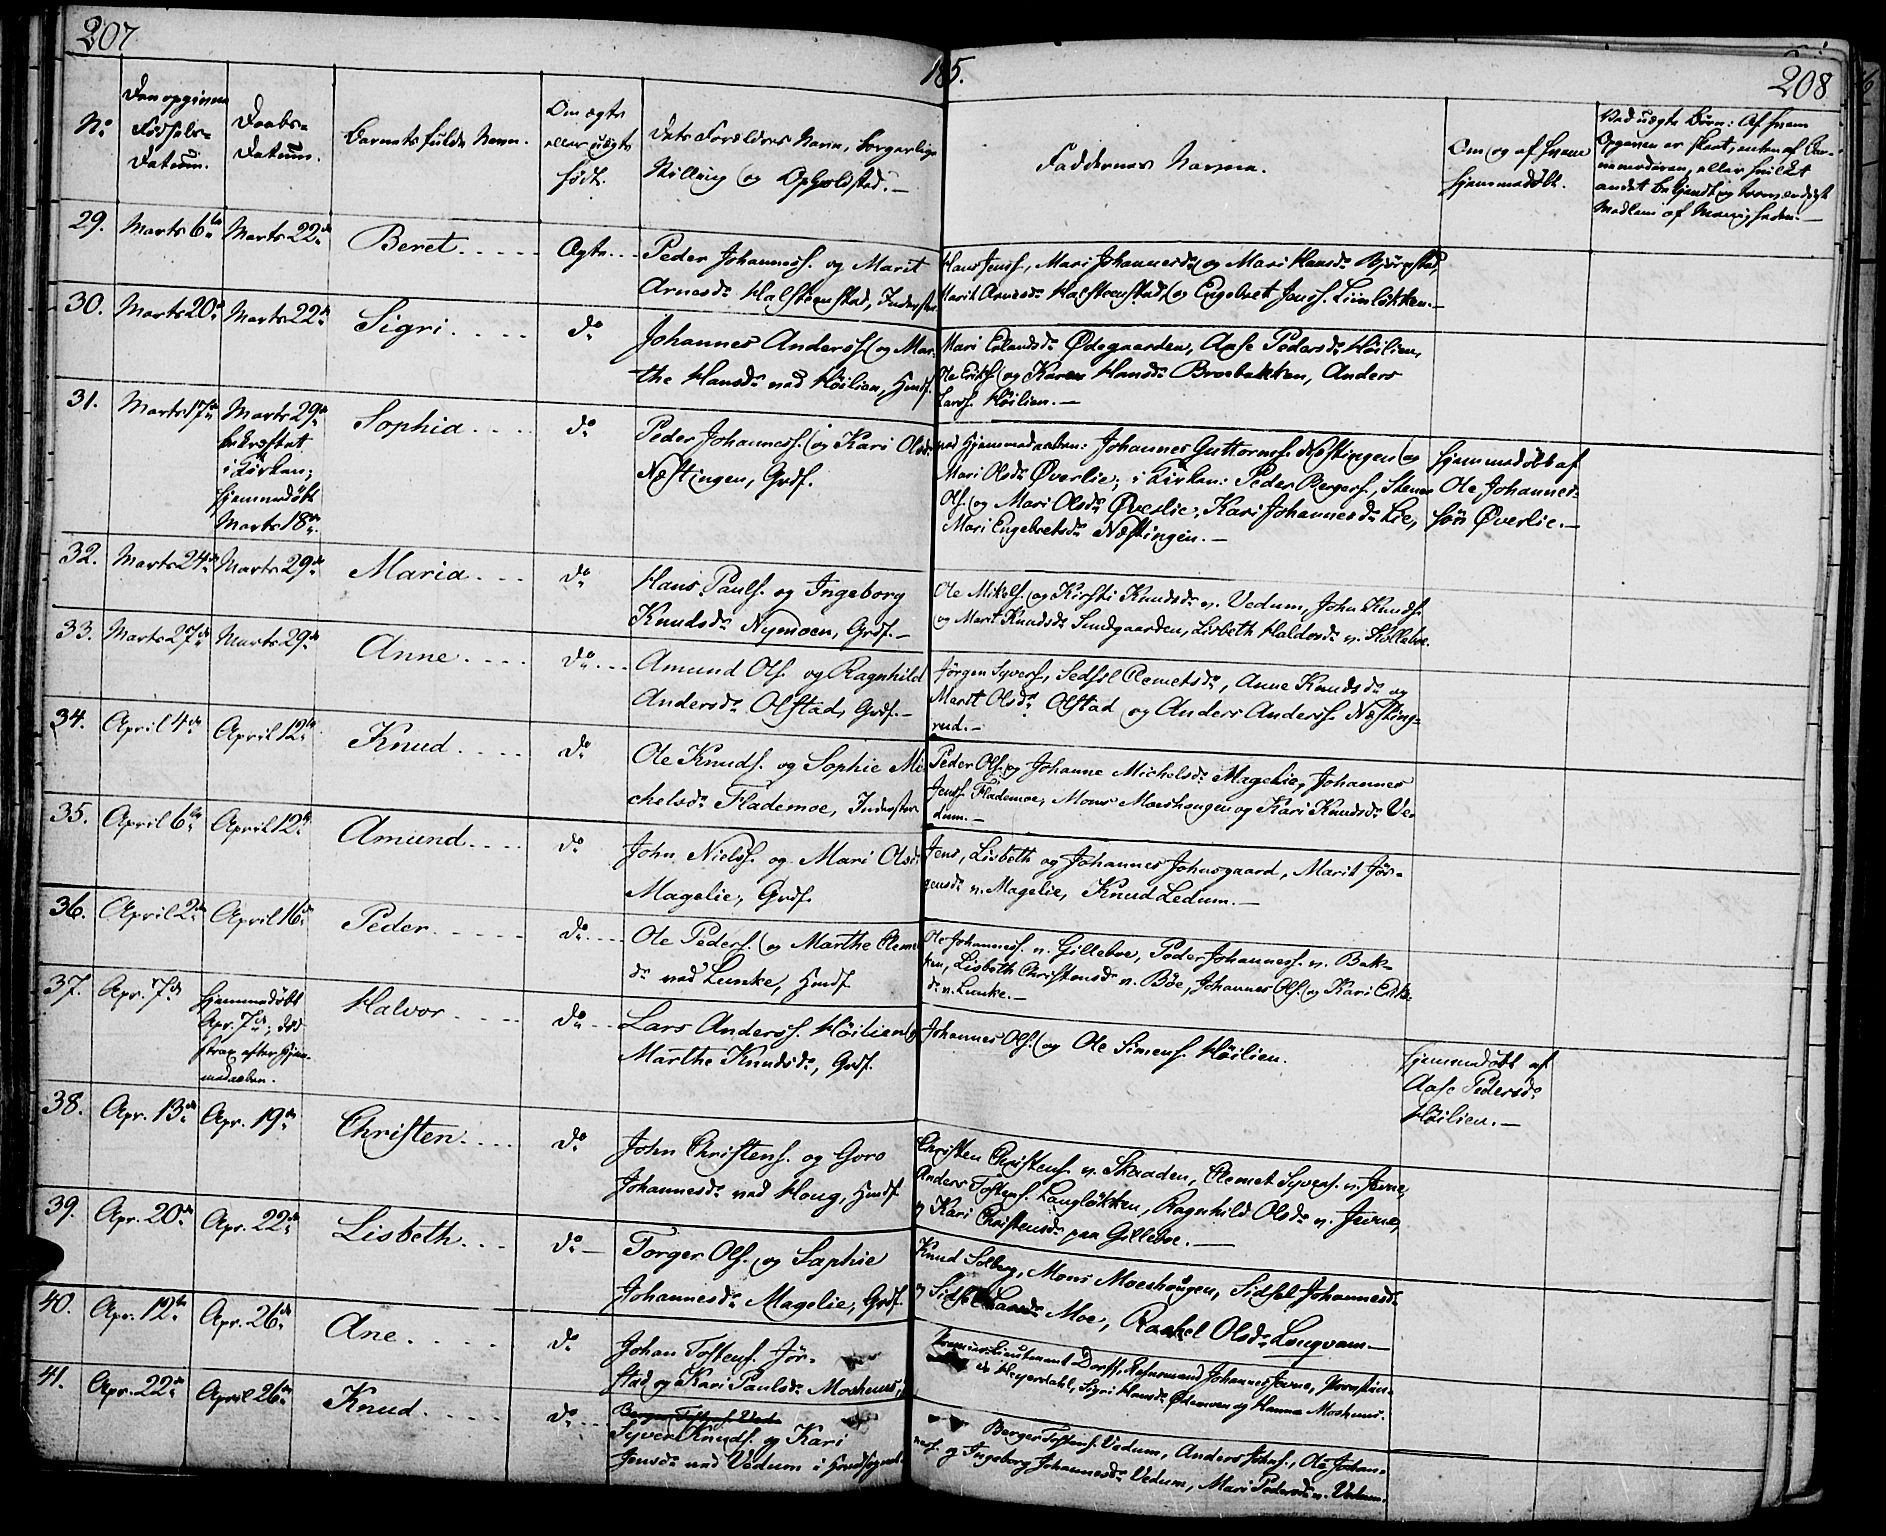 207
185.
208
No
Den opgivne
Fødsels-
Datum.
Daabs-
Datum.
Barnets fulde Navn.
Om ægte
eller uægte
født.
Dets Forældres Navn, borgerlige
Stilling og Opholdsted.-
Faddernes Navne.
Om og af hvem
hjemmedøbt.
Ved uægte Børn: Af hvem
Opgiven er skeet, enten af Bar-
nemoderen, eller hvilket
andet bekjendt og troværdigt
Medlem af Menigheden.-
29. Marts 6te Marts 22de Beret Ægte
Peder Johanness. og Marit
Arnesdr Halsteenstad, Inderster
Hans Jenss., Mari Johannesdr og Mari Hansdr Bjørnstad,
Marit Arnesdr Halsteenstad og Engebret Jonss. Liimløkken.-
30. Marts 20de Marts 22de Sigri do
Johannes Anderss. og Mar-
the Hansdr ved Höilien, Huusf.
Mari Erlandsdr Ødegaarden, Aase Pedersdr Höilien,
Ole Eriks. og Karen Hansdr Broebakken, Anders
Larss. Höilien.-
31. Marts 17de Marts 29de
bekræftet
i Kirken;
hjemmedöbt
Marts 18de
Sophia do
Peder Johanness. og Kari Olsdr
Næstingen, Grdf.
ved Hjemmedaaben: Johannes Guttormss. Næstingen og
Mari Olsdr Øverlie; i Kirken: Peder Bergers., Stener
Ols. og Mari Olsdr Øverlie, Kari Johannesdr Lie,
Mari Engebretsdr Næstingen.-
hjemmedöbt af
Ole Johannes-
søn Øverlie.-
32. Marts 24de Marts 29de Maria do
Hans Pauls. og Ingeborg
Knudsdr Nymoen, Grdf.-
Ole Mikels. og Kirsti Knudsdr n. Vedum, John Knuds.
og Marit Knudsdr Sundgaarden, Lisbeth Haldosdr n. Skalleboe.
33. Marts 27de Marts 29de Anne do
Amund Ols. og Ragnhild
Andersdr Olstad, Grdf.-
Jørgen Syvers., Sidsel Clemetsdr, Anne Knudsdr og
Marit Olsdr Olstad og Anders Anderss. Næsting-
rud.-
34. April 4de April 12te Knud do
Ole Knuds. og Sophie Mi-
chelsdr Flademoe, Inderster
Peder Ols. og Johanne Michelsdr Magelie, Johannes
Jenss. Flademoe, Mons Moeshaugen og Kari Knudsdr Ve-
dum.-
35. April 6te April 12te Amund do
John Niels. og Mari Olsdr
Magelie, Grdf.
Jens, Lisbeth og Johannes Johnsgaard, Marit Jør-
gensdr n. Magelie, Knud Ledum.-
36. April 2den April 16de Peder do
Ole Peders. og Marthe Clemets-
dr ved Lunke, Huusf
Ole Johanness. n. Gilleboe, Peder Johanness. n. Bak-
ken, Lisbeth Christensdr n. Böe, Johannes Ols. og Kari Eriks-
dr n. Lunke.-
37. Apr. 7de Hjemmedöbt
Apr. 7de; död
strax efter Hjem-
medaaben.
Halvor do
Lars Anderss. Höilien og
Marthe Knudsdr, Grdf.
Johannes Ols. og Ole Simens. Höilien.
hjemmedöbt af
Aase Pedersdr
Höilien.-
38. Apr. 13de Apr. 19de Christen do
John Christens. og Goro
Johannesdr ved Houg, Huusf
Christen Christens. n. Skaaden, Clemet Syvers. n. Jevne,
Anders Tostens. Langløkken, Ragnhild Olsdr n. Jevne,
og Kari Christensdr paa Gilleboe.-
39. Apr. 20de Apr. 22de Lisbeth do
Torger Ols. og Sophie
Johannesdr Magelie, Grdf.
Knud Solberg, Mons Moeshaugen, Sidsel Johannesdr
og Sidsel Larsdr Moe, Rachel Olsdr Longvam.-
40. Apr. 12te Apr. 26de Ane do
Johan Tostens. Jör-
stad og Kari Paulsdr Moshuus,
Premier-Lieutenant Dorff, Lehnsmand Johannes Jevne,
de Heyerdahl, Sigri Hansdr Ødemoen og Hanna Moshuus.
41. Apr. 22de April 26de Knud do
Syver Knuds. og Kari
Jensdr ved Vedum i Huusf
Berger Tostens. Vedum, Anders Johns., Ole Johan-
ness. og Ingeborg Johannesdr Vedum, Mari Pedersdr n. Vedum.